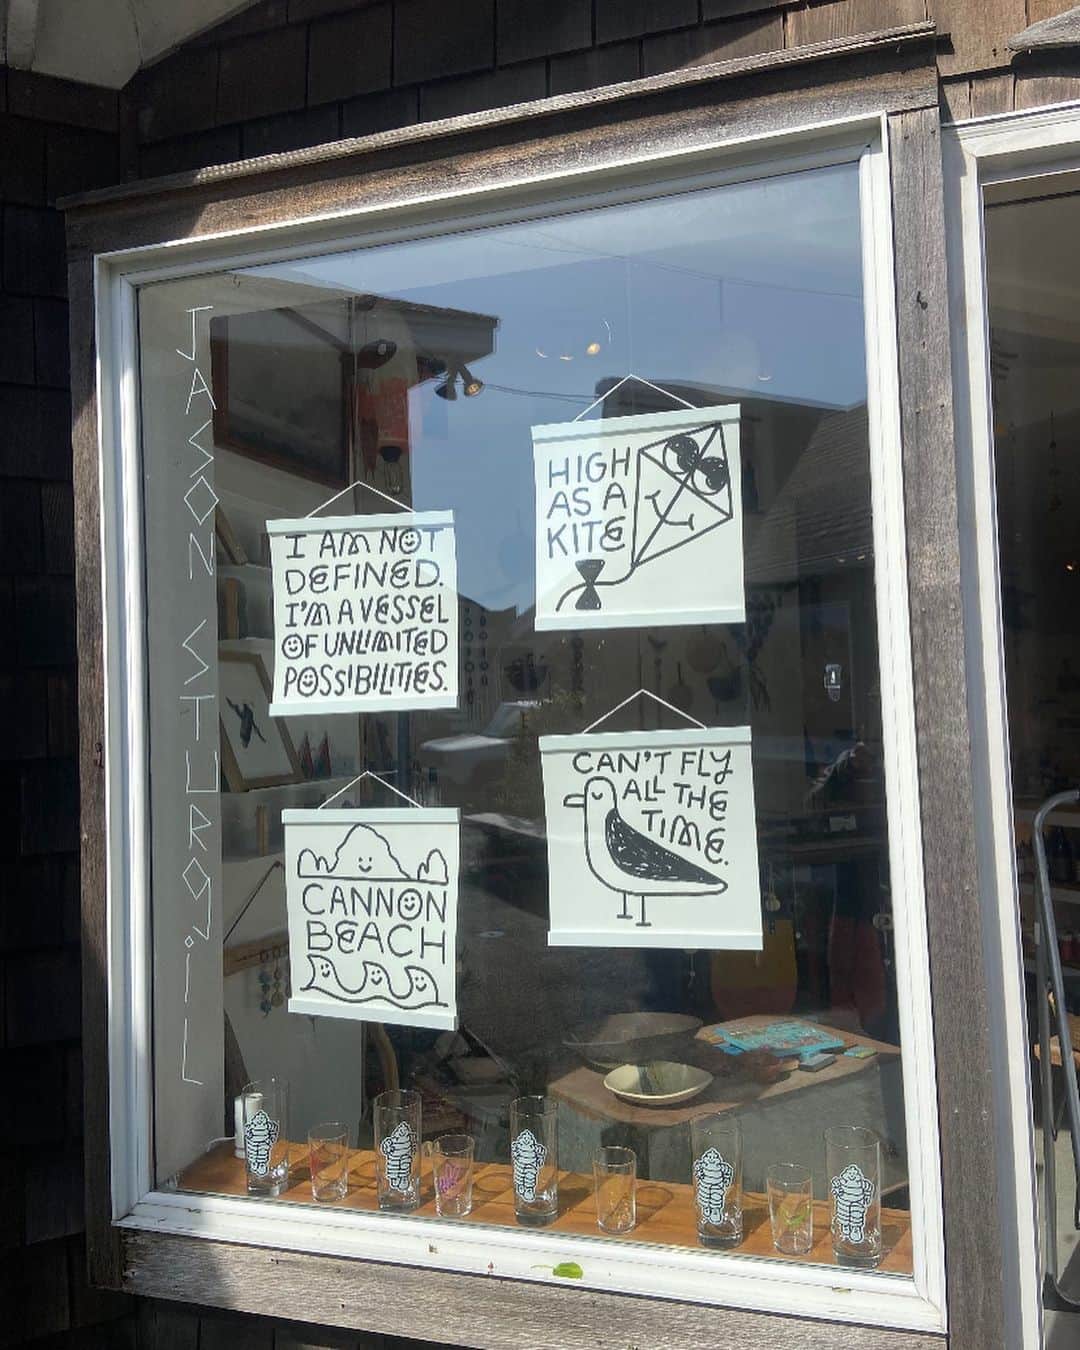 JASON STURGILL
I AM NOT
DEFINED.
I'M A VESSEL
OF UNLIMITED
POSSIBILITIES.
HIGH
AS A
KITE
CANNON
BEACH
CAN'T FLY
ALL THE
TIME.